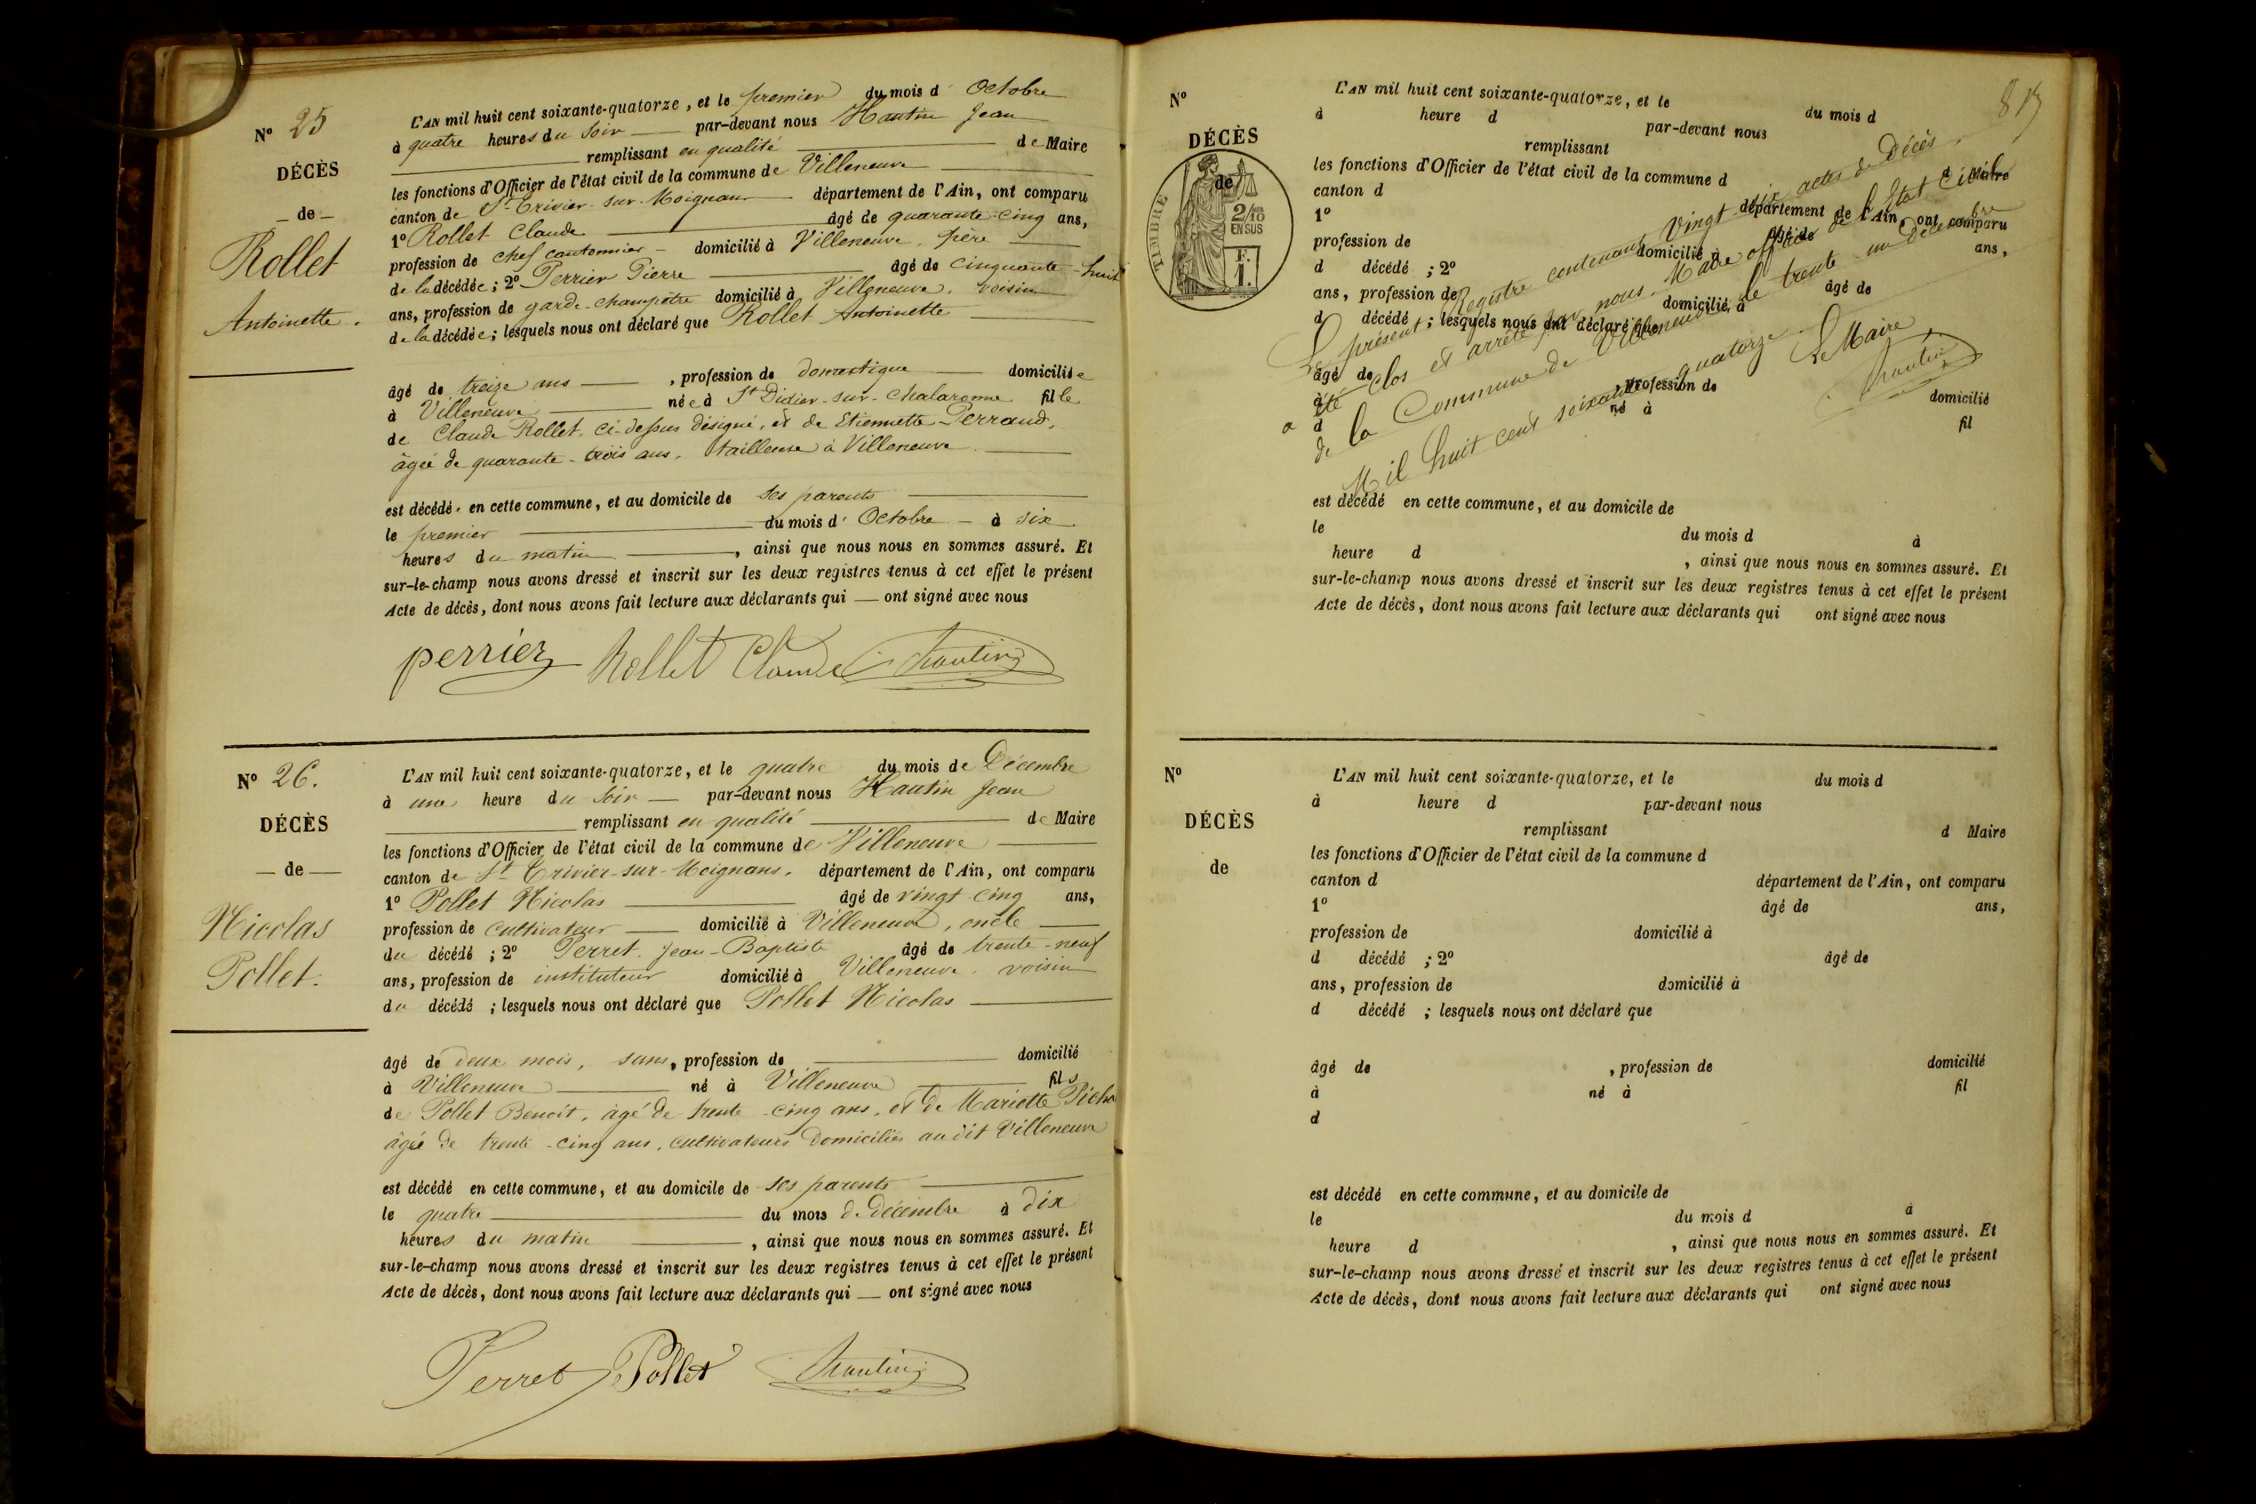 N° 25
DÉCÈS
— de —
Rollet
Antoinette.
L'AN mil huit cent soixante-quatorze, et le premier du mois d' Octobre
à quatre heures du soir — par-devant nous Hautin Jean
remplissant en qualité de Maire
les fonctions d'Officier de l'état civil de la commune de Villeneuve
canton de St Trivier-sur-Moignans département de l'Ain, ont comparu
1° Rollet Claude âgé de quarante-cinq ans,
profession de chef cantonnier — domicilié à Villeneuve, père
de la décédée; 2° Perrier Pierre âgé de cinquante-huit
ans, profession de garde-champêtre domicilié à Villeneuve, voisin
de la décédée; lesquels nous ont déclaré que Rollet Antoinette
âgé de treize ans —, profession de domestique — domiciliée
à Villeneuve née à St Didier-sur-Chalaronne fille
de Claude Rollet, ci-dessus désigné, et de Etiennette Perraud,
âgée de quarante-trois ans, tailleuse à Villeneuve.
est décédée en cette commune, et au domicile de ses parents
le premier du mois d' Octobre — à six
heures du matin, ainsi que nous nous en sommes assuré. Et
sur-le-champ nous avons dressé et inscrit sur les deux registres tenus à cet effet le présent
Acte de décès, dont nous avons fait lecture aux déclarants qui — ont signé avec nous
perrier Rollet Claude Hautin
N° 26.
DÉCÈS
— de —
Nicolas
Pollet.
L'AN mil huit cent soixante-quatorze, et le quatre du mois de Décembre
à une heure du soir — par-devant nous Hautin Jean
remplissant en qualité de Maire
les fonctions d'Officier de l'état civil de la commune de Villeneuve
canton de St Trivier-sur-Moignans. département de l'Ain, ont comparu
1° Pollet Nicolas âgé de vingt-cinq ans,
profession de cultivateur — domicilié à Villeneuve, oncle
du décédé; 2° Perret Jean-Baptiste âgé de trente-neuf
ans, profession de instituteur domicilié à Villeneuve, voisin
du décédé; lesquels nous ont déclaré que Pollet Nicolas
âgé de deux mois, sans, profession de domicilié
à Villeneuve né à Villeneuve fils
de Pollet Benoit, âgé de trente-cinq ans, et de Mariette
âgée de trente-cinq ans, cultivateurs domiciliés au dit Villeneuve
est décédé en cette commune, et au domicile de ses parents
le quatre du mois de Décembre à dix
heures du matin, ainsi que nous nous en sommes assuré. Et
sur-le-champ nous avons dressé et inscrit sur les deux registres tenus à cet effet le présent
Acte de décès, dont nous avons fait lecture aux déclarants qui — ont signé avec nous
Perret Pollet Hautin
N°
DÉCÈS
de
TIMBRE
2/10
EN SUS
F.
1.
L'AN mil huit cent soixante-quatorze, et le du mois d
à heure d par-devant nous
remplissant d Maire
les fonctions d'Officier de l'état civil de la commune d
canton d département de l'Ain, ont comparu
1° âgé de ans,
profession de domicilié à
d décédé; 2° âgé de
ans, profession de domicilié à
d décédé; lesquels nous ont déclaré que
âgé de, profession de domicilié
à né à fil
d
Le présent Registre contenant vingt-six actes de Décès
a été clos et arrêté par nous, Maire officier de l'Etat Civil
de la Commune de Villeneuve, le trente-un Décembre
Mil huit cent soixante quatorze
Le Maire
Hautin
est décédé en cette commune, et au domicile de
le du mois d à
heure d, ainsi que nous nous en sommes assuré. Et
sur-le-champ nous avons dressé et inscrit sur les deux registres tenus à cet effet le présent
Acte de décès, dont nous avons fait lecture aux déclarants qui ont signé avec nous
N°
DÉCÈS
de
L'AN mil huit cent soixante-quatorze, et le du mois d
à heure d par-devant nous
remplissant d Maire
les fonctions d'Officier de l'état civil de la commune d
canton d département de l'Ain, ont comparu
1° âgé de ans,
profession de domicilié à
d décédé; 2° âgé de
ans, profession de domicilié à
d décédé; lesquels nous ont déclaré que
âgé de, profession de domicilié
à né à fil
d
est décédé en cette commune, et au domicile de
le du mois d à
heure d, ainsi que nous nous en sommes assuré. Et
sur-le-champ nous avons dressé et inscrit sur les deux registres tenus à cet effet le présent
Acte de décès, dont nous avons fait lecture aux déclarants qui ont signé avec nous